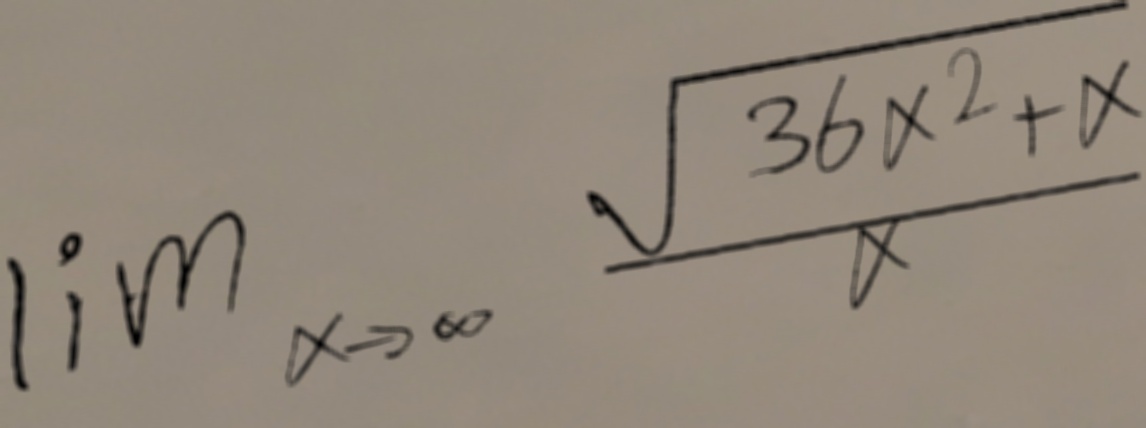 lim x→∞ √(36x²+x) / x